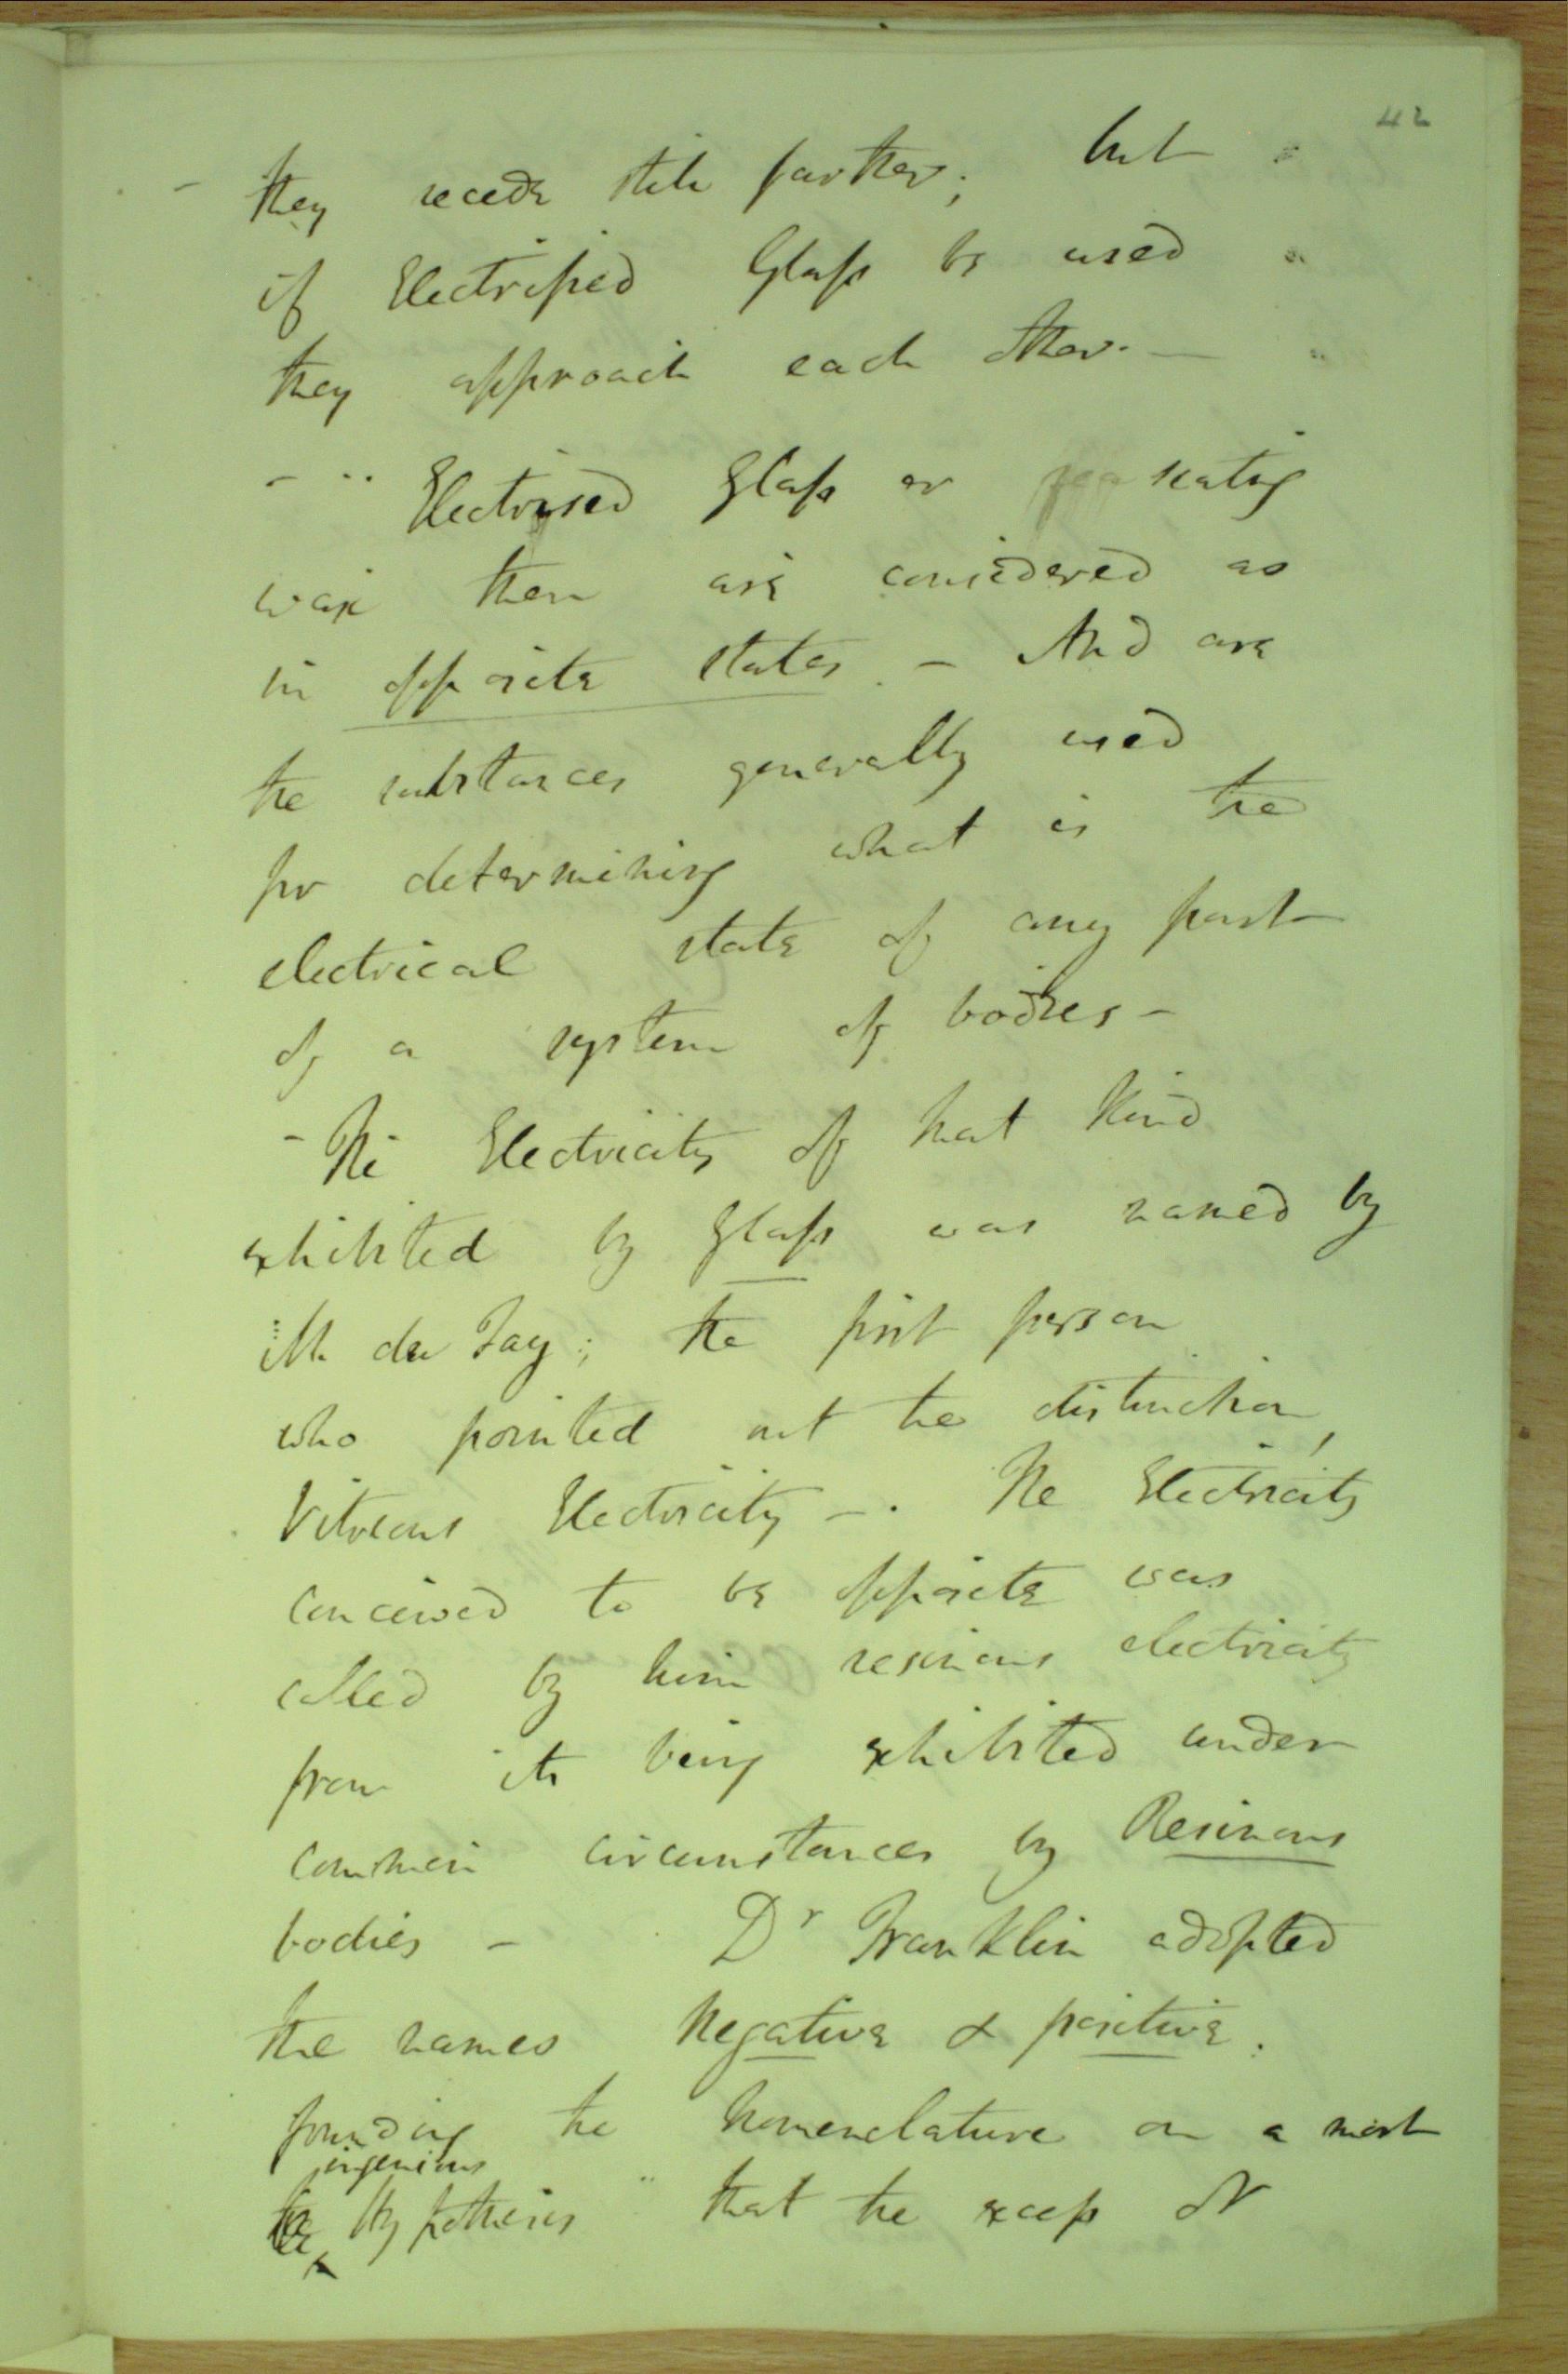 42
they recede still farther; but
if Electrified Glass be used
they approach each other. —
- Electrised Glass or sealing
wax then are considered as
in opposite states. - And are
the substances generally used
for determining what is the
electrical state of any part
of a system of bodies -
- The Electricity of that kind
exhibited by Glass was named by
M. du Fay; the first person
who pointed out the distinction,
Vitreous Electricity -. The Electricity
conceived to be opposite was
called by him resinous electricity
from its being exhibited under
common circumstances by Resinous
bodies - Dr Franklin adopted
the names Negative & positive.
founding the nomenclature on a most
ingenious
Hypothesis that the excess or